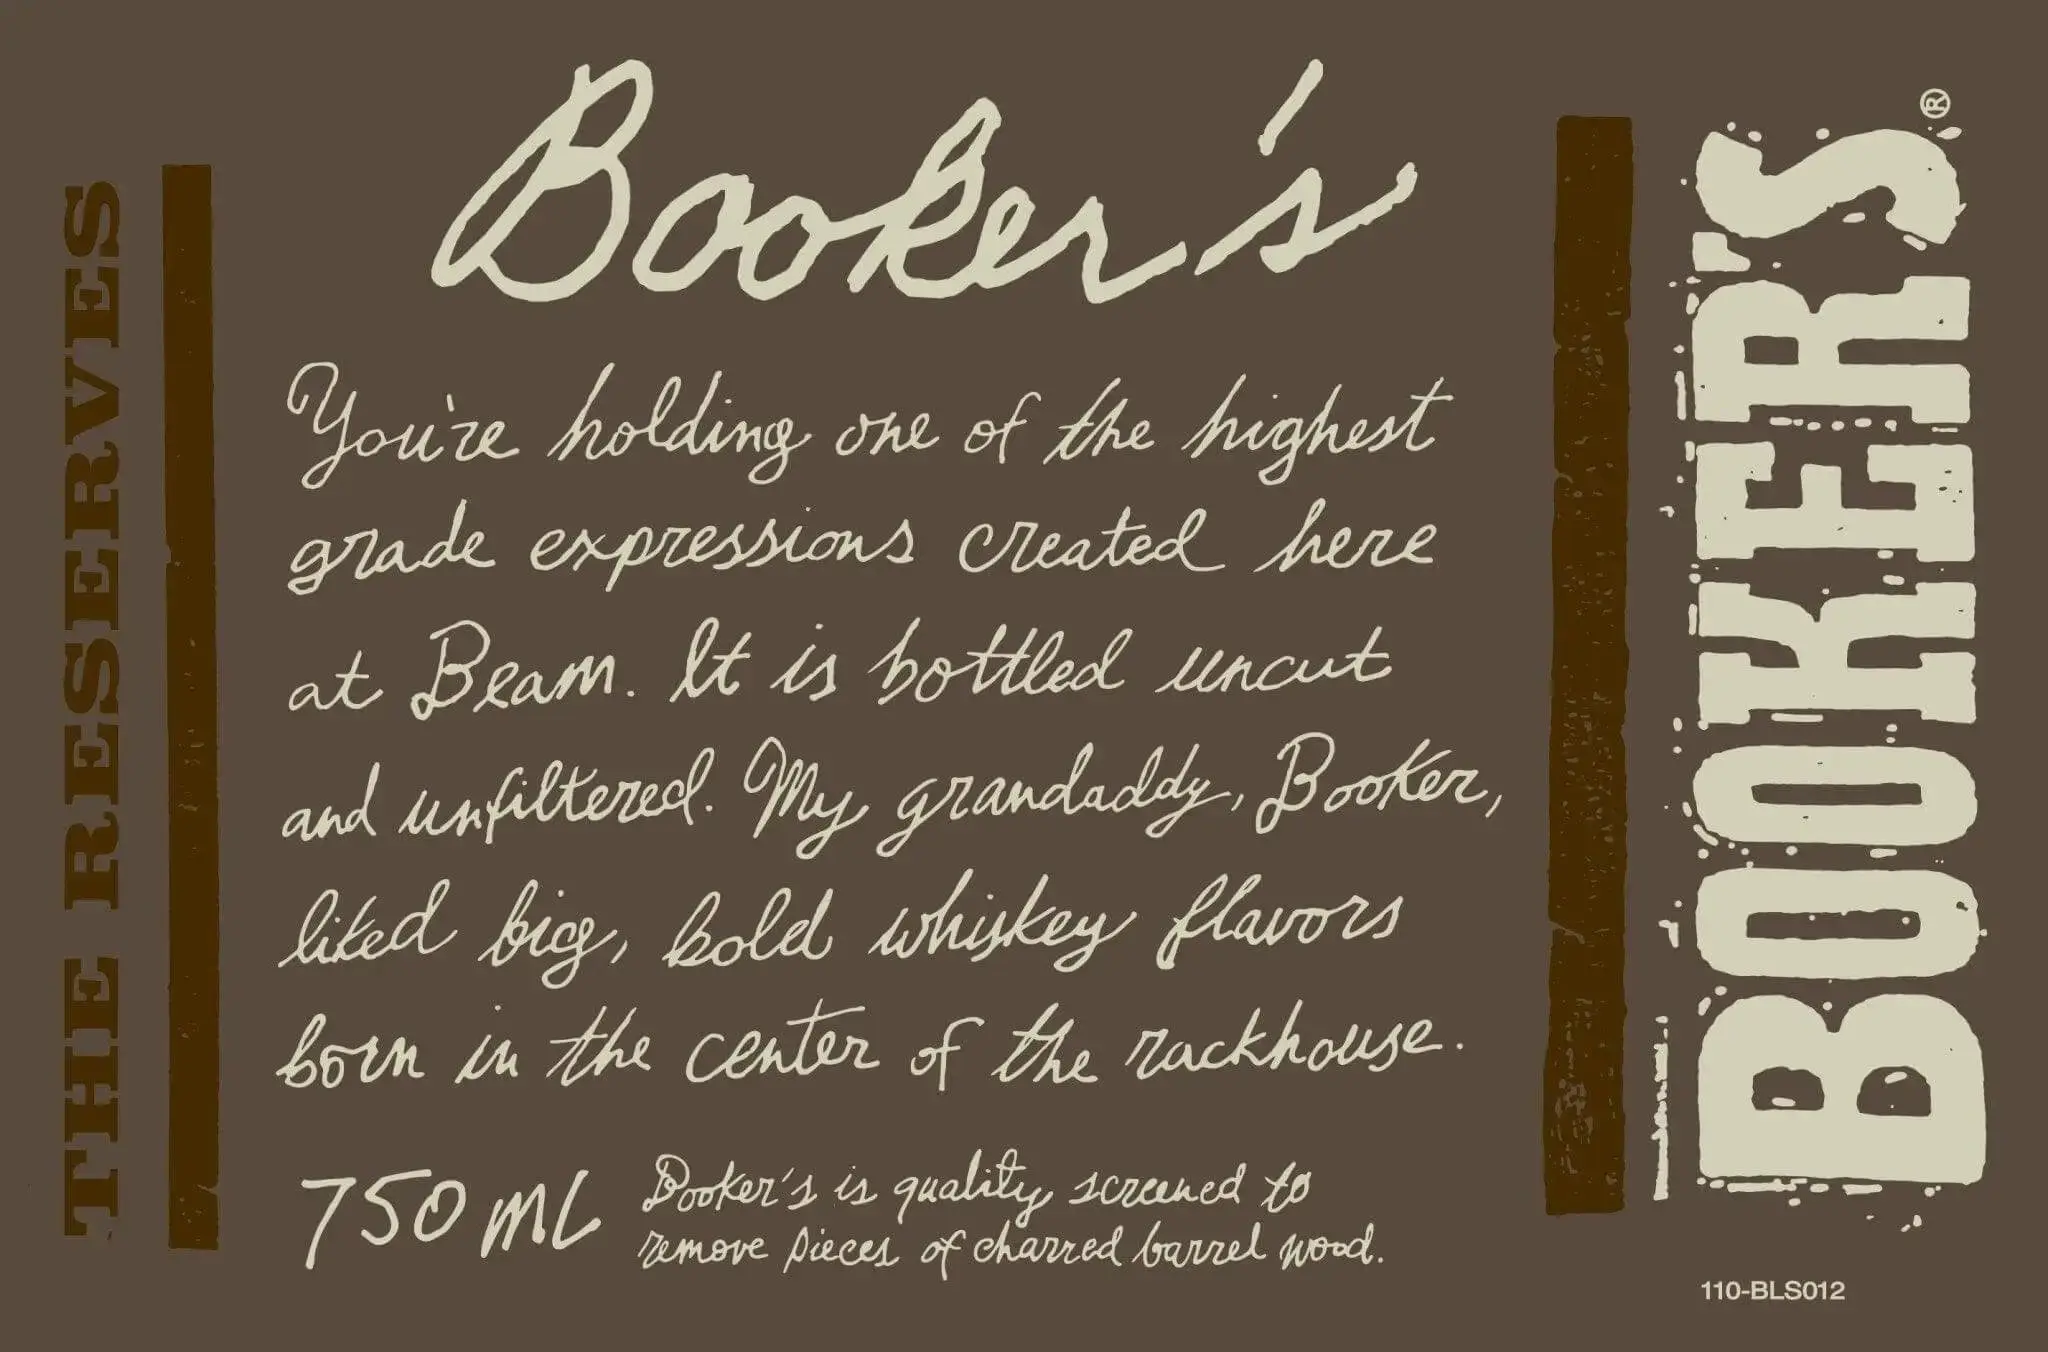 THE RESERVES
Booker's
You're holding one of the highest
grade expressions created here
at Beam. It is bottled uncut
and unfiltered. My grandaddy, Booker,
liked big, bold whiskey flavors
born in the center of the rackhouse.
750 mL
Booker's is quality screened to
remove pieces of charred barrel wood.
BOOKER'S®
110-BLS012